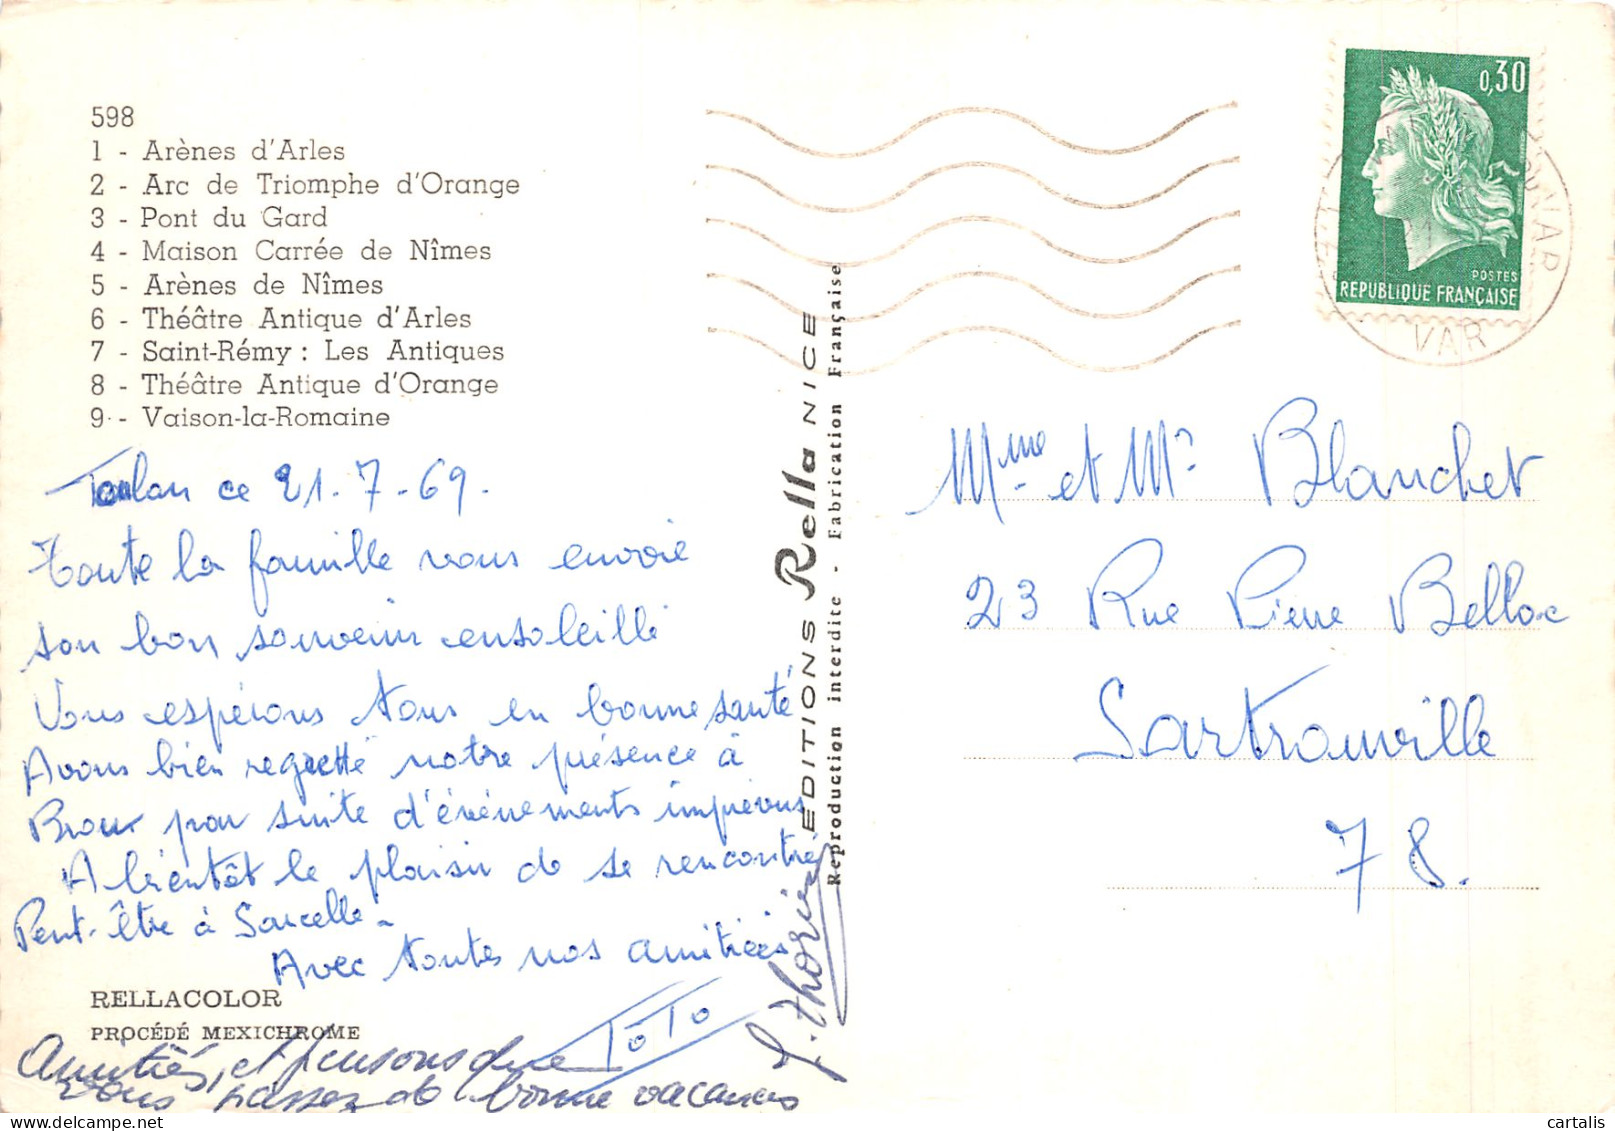 598
1 - Arènes d'Arles
2 - Arc de Triomphe d'Orange
3 - Pont du Gard
4 - Maison Carrée de Nîmes
5 - Arènes de Nîmes
6 - Théâtre Antique d'Arles
7 - Saint-Rémy : Les Antiques
8 - Théâtre Antique d'Orange
9 - Vaison-la-Romaine
Toulon ce 21.7-69.
Toute la famille vous envoie
son bon souvenir ensoleillé
Vous espérons tous en bonne santé
Avons bien regretté notre présence à
Broux par suite d'événements imprévus
A bientôt le plaisir de se rencontré
Peut-être à Sarcelle -
Avec toutes nos amitiées
TOTO
RELLACOLOR
PROCÉDÉ MEXICHROME
Amitiés, et pensons que
vous passez de bonne vacances
EDITIONS Rella NICE
Reproduction interdite - Fabrication Française
0,30
POSTES
REPUBLIQUE FRANÇAISE
VAR
VAR
Mme et Mr Blanchet
23 Rue Pierre Belloc
Sartrouville
78.
cartalis